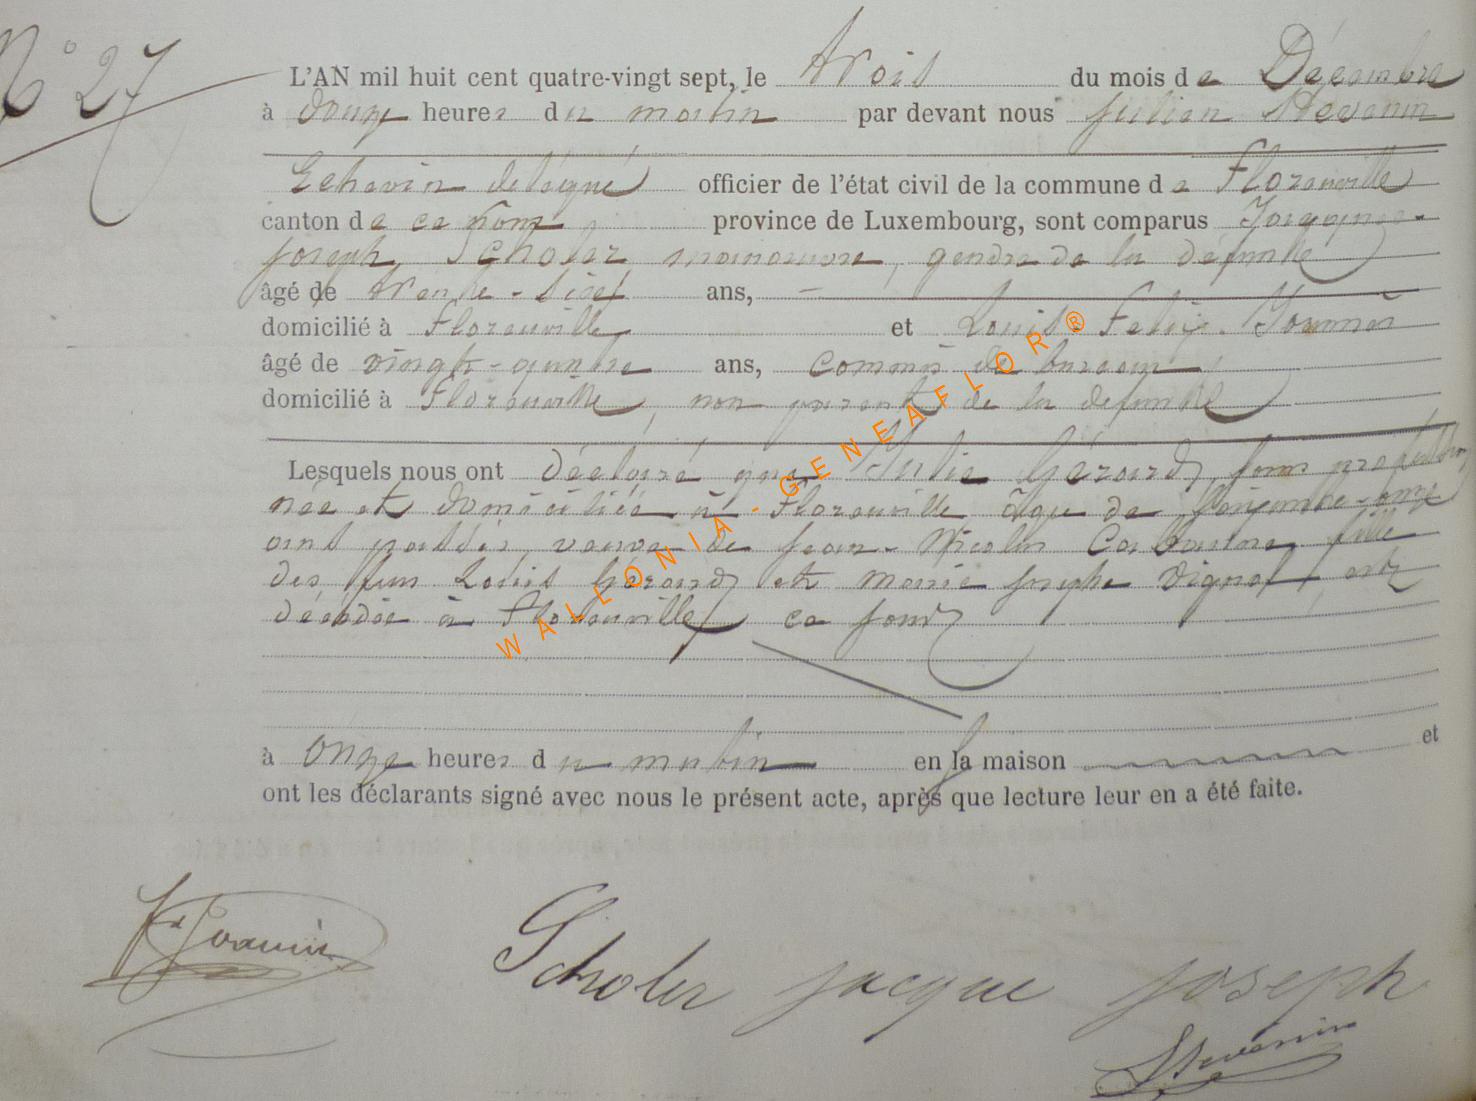 N° 27
L'AN mil huit cent quatre-vingt sept, le trois du mois de Décembre
à douze heures du matin par devant nous Julien Stevenin
Echevin délégué officier de l'état civil de la commune de Florenville
canton de ce nom province de Luxembourg, sont comparus Jacques
Joseph Scholer manœuvre, gendre de la défunte
âgé de trente-sept ans,
domicilié à Florenville et Louis Felix
âgé de vingt-quatre ans, commis de bureau
domicilié à Florenville, non parent de la defunte
Lesquels nous ont déclaré que Julie Gérard, sans profession
née et domiciliée à Florenville âgée de soixante-onze
ans passés, veuve de Jean-Nicolas fille
des feus Louis Gerard et Marie Josephe est
décédée à Florenville ce jour
à onze heures du matin en sa maison et
ont les déclarants signé avec nous le présent acte, après que lecture leur en a été faite.
Scholer jacque joseph
Stevenin
WALLONIA-GENEAFLOR®